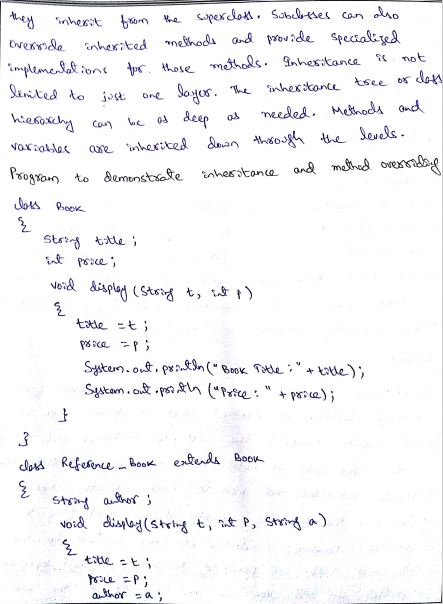 they inherit from the superclass. Subclasses can also
override inherited methods and provide specialized
implementations for those methods. Inheritance is not
limited to just one layer. The inheritance tree or class
hierarchy can be as deep as needed. Methods and
variables are inherited down through the levels.
Program to demonstrate inheritance and method overriding
class Book
{
String title ;
int price ;
void display (String t, int p)
{
title = t ;
price = p ;
System.out.println("Book Title : " + title);
System.out.println ("Price : " + price) ;
}
}
class Reference_Book extends Book
{
String author ;
void display(String t, int P, String a)
{
title = t ;
Price = P ;
author = a ;